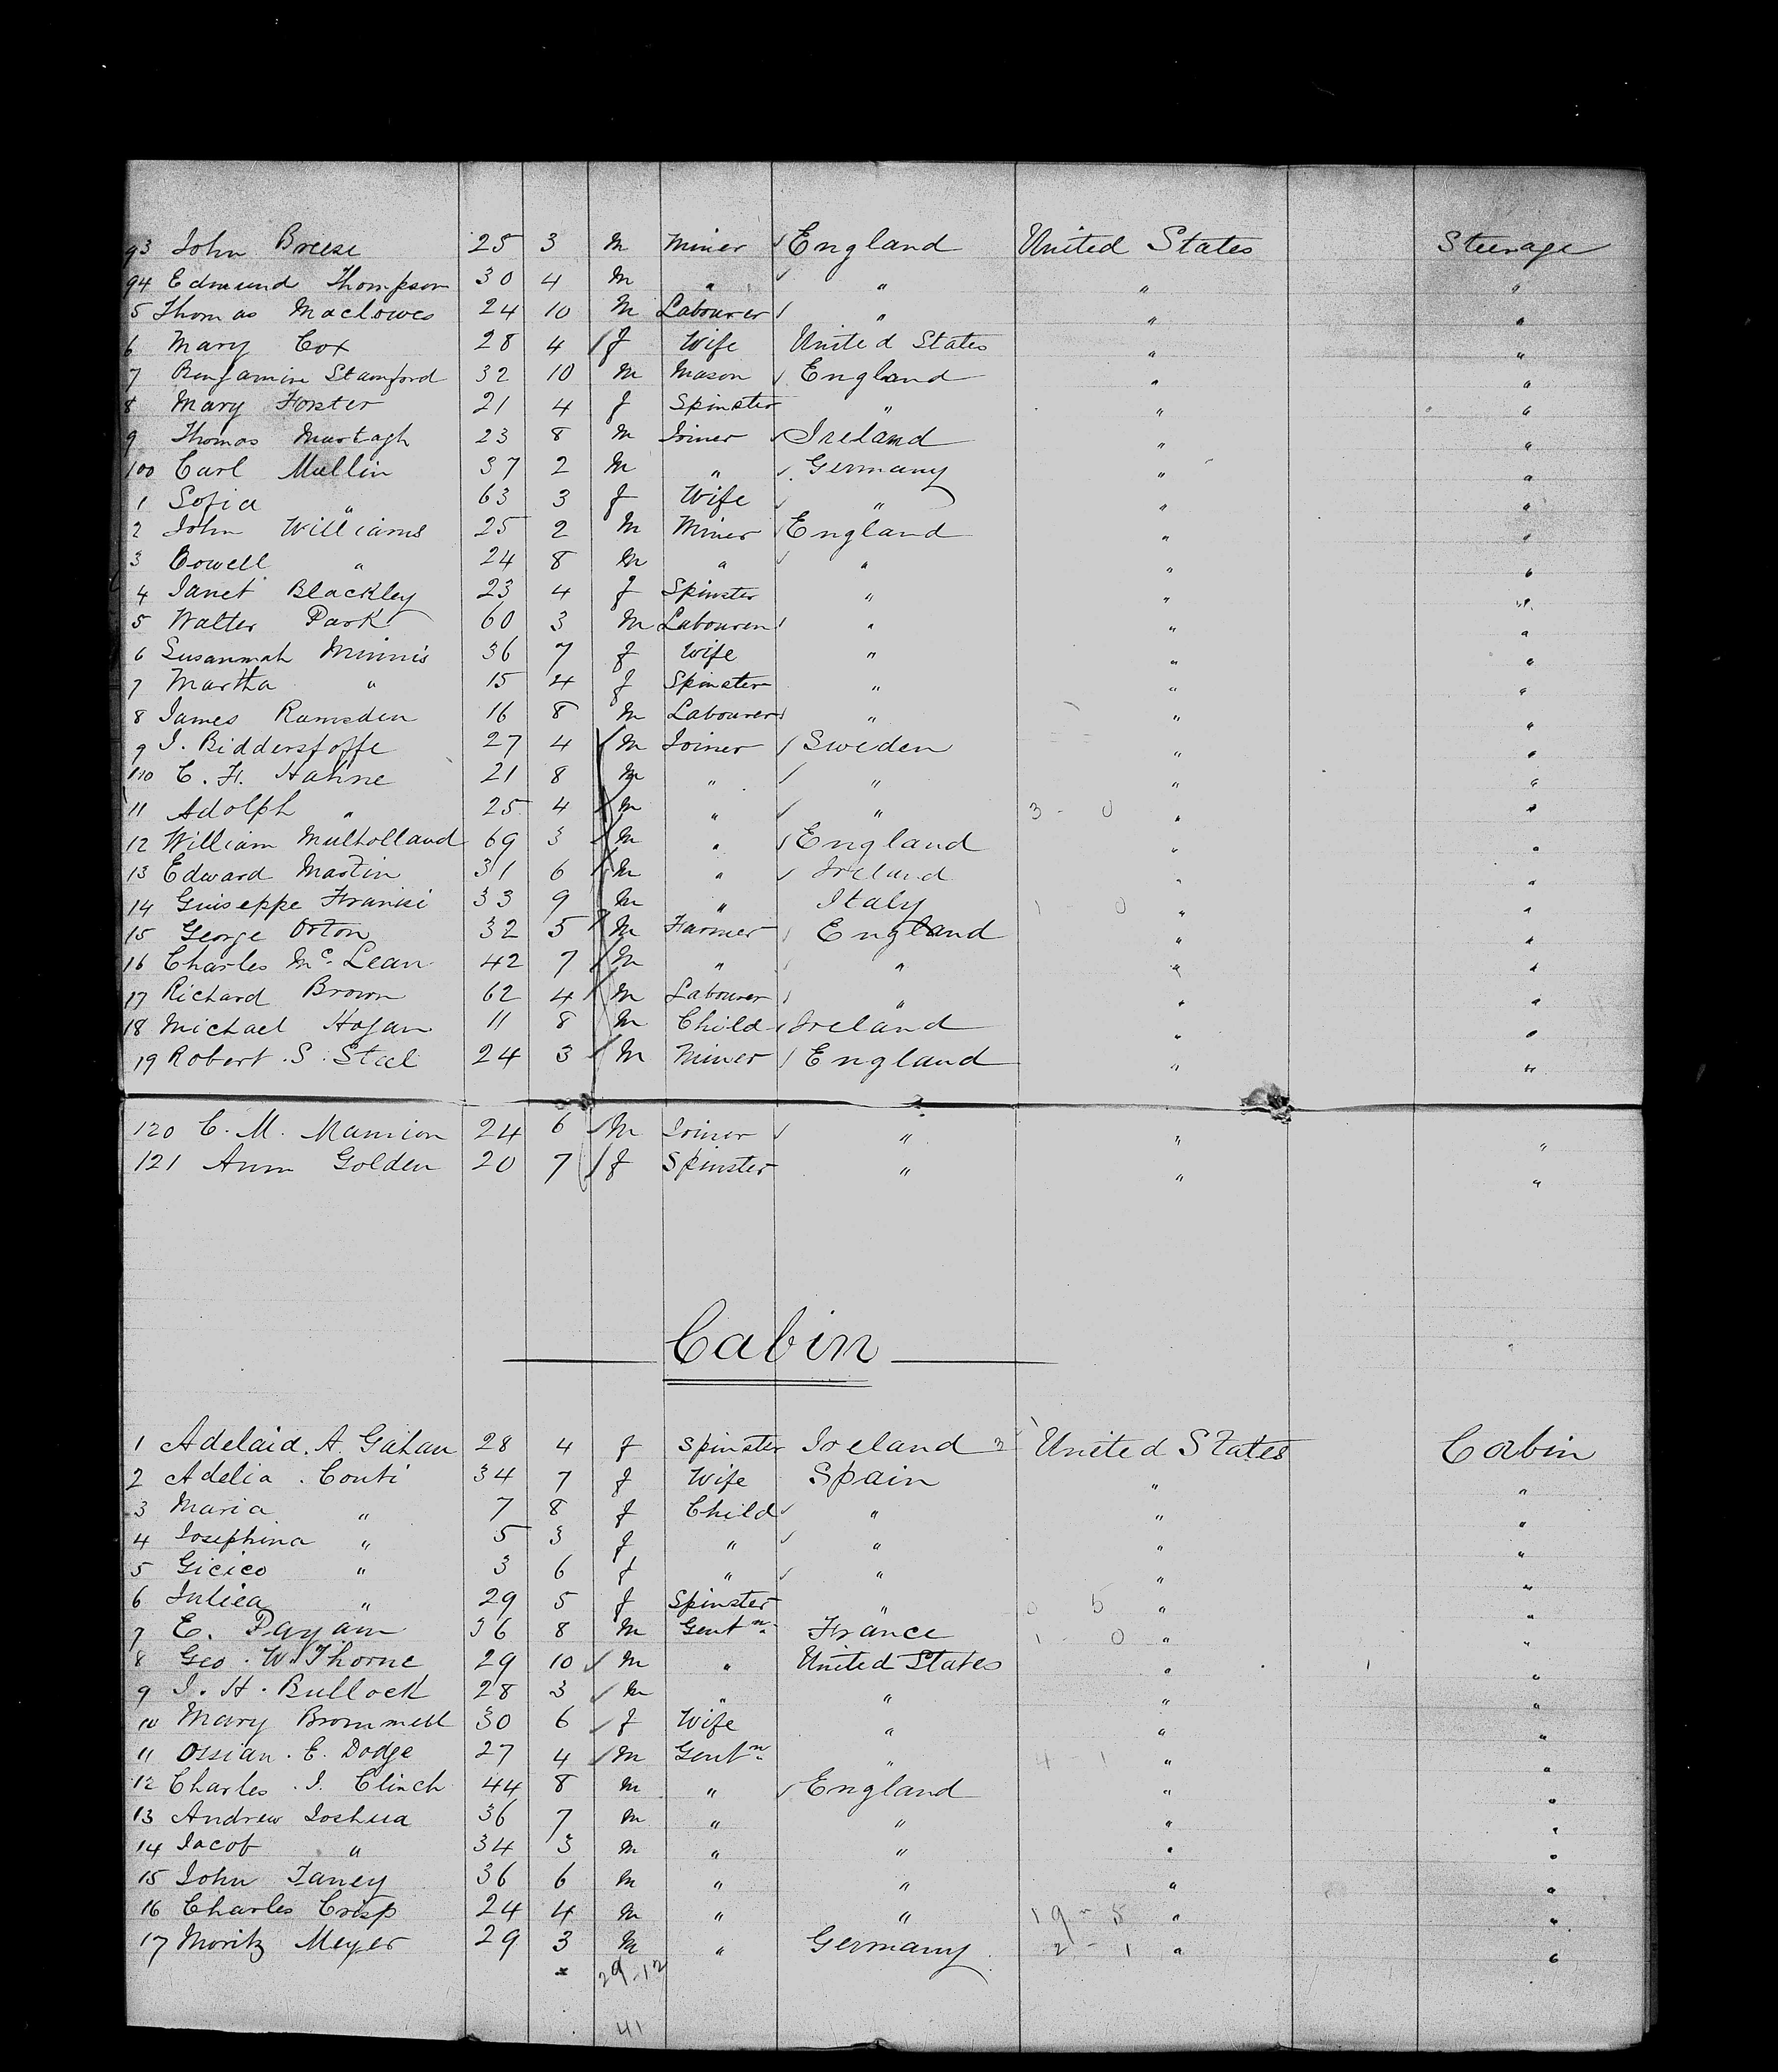 93 John Breese 25 3 M Miner England United States Steerage
94 Edmund Thompson 30 4 M " " " "
5 Thomas Maclowes 24 10 M Labourer " " "
6 Mary Cox 28 4 f Wife United States " "
7 Benjamin Stamford 32 10 M Mason England " "
8 Mary Forster 21 4 f Spinster " " "
9 Thomas Murtagh 23 8 M Joiner Ireland " "
100 Carl Mullin 37 2 M " Germany " "
1 Sofia " 63 3 f Wife " " "
2 John Williams 25 2 M Miner England " "
3 Cowell " 24 8 M " " " "
4 Janet Blackley 23 4 f Spinster " " "
5 Walter Park 60 3 M Labourer " " "
6 Susannah Minnis 36 7 f Wife " " "
7 Martha " 15 4 f Spinster " " "
8 James Ramsden 16 8 M Labourer " " "
9 J. Bidderstoffe 27 4 M Joiner Sweden " "
110 C. F. Hahne 21 8 M " " " "
11 Adolph " 25 4 M " " 3 - 0 " "
12 William Mulholland 69 3 M " England " "
13 Edward Martin 31 6 M " Ireland " "
14 Guiseppe 33 9 M " Italy 1 - 0 " "
15 George Orton 32 5 M Farmer England " "
16 Charles Mc. Lean 42 7 M " " " "
17 Richard Brown 62 4 M Labourer " " "
18 Michael Hogan 11 8 M Child Ireland " "
19 Robert . S . Steel 24 3 M Miner England " "
120 C. M. Mannion 24 6 M Joiner " " "
121 Ann Golden 20 7 f Spinster " " "
Cabin
1 Adelaid. A. Gahan 28 4 f Spinster Ireland United States Cabin
2 Adelia . Conti 34 7 f Wife Spain " "
3 Maria " 7 8 f Child " " "
4 Josephina " 5 3 f " " " "
5 Gicico " 3 6 f " " " "
6 Juliea " 29 5 f Spinster " 0 5 " "
7 E. Payam 36 8 M Gentn. France 1 - 0 " "
8 Geo . W. Thorne 29 10 M " United States " "
9 J . H . Bullock 28 3 M " " " "
10 Mary Brommell 30 6 f Wife " " "
11 Ossian . E. Dodge 27 4 M Gentn. " 4 - 1 " "
12 Charles . J. Clinch 44 8 M " England " "
13 Andrew Joshua 36 7 M " " " "
14 Jacob " 34 3 M " " " "
15 John Taney 36 6 M " " " "
16 Charles Crisp 24 4 M " " 19 - 5 " "
17 Moritz Meyer 29 3 M " Germany 2 - 1 " "
29-12
41